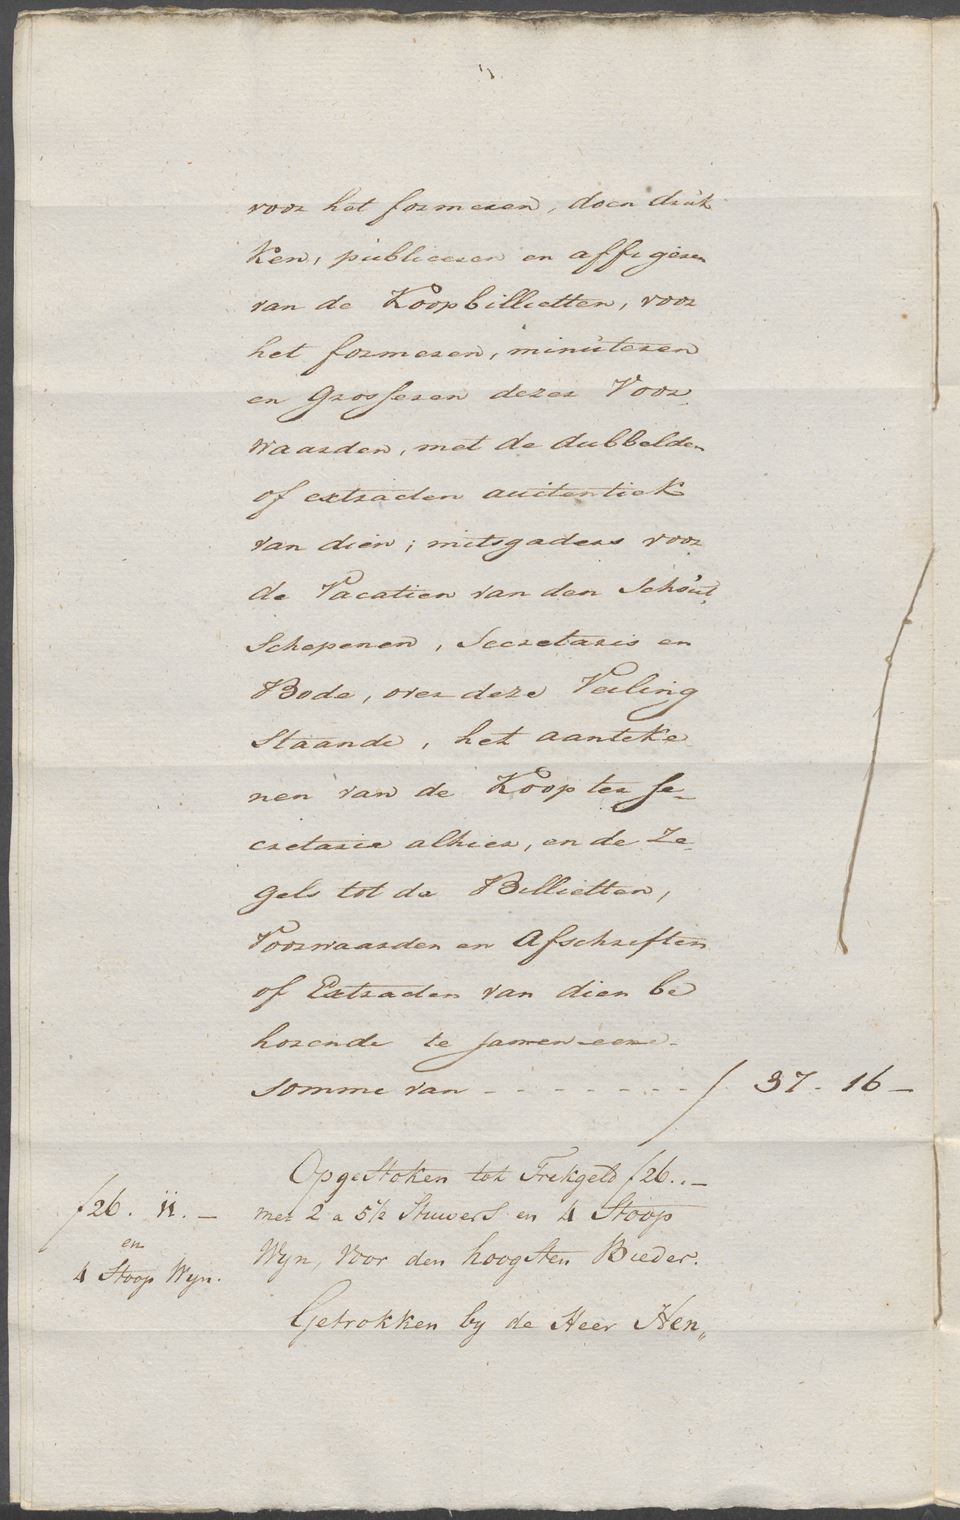 voor het formeren, doen druk
ken, publiceren en affigeren
van de Koopbillietten, voor
het formeren, minuteren
en Grosseren dezer Voor-
waarden, met de dubbelden
of extracten autentiek
van dien; mitsgaders voor
de Vacatien van den Schout,
Schepenen, Secretaris en
Bode, over deze Veiling
Staande, het aanteke
nen van de Koop ter Se-
cretarie alhier, en de Ze-
gels tot de Billietten,
Voorwaarden en Afschriften
of Extracten van dien be
horende te samen eene
somme van - - - - - - - - ƒ 37 - 16 -
Opgestoken tot Trekgeld ƒ26..-
ƒ26. 11. -
met 2 a 5½ Stuvers en 4 Stoop
en
4 Stoop Wyn.
Wyn, Voor den hoogsten Bieder.
Getrokken by de Heer Hen„